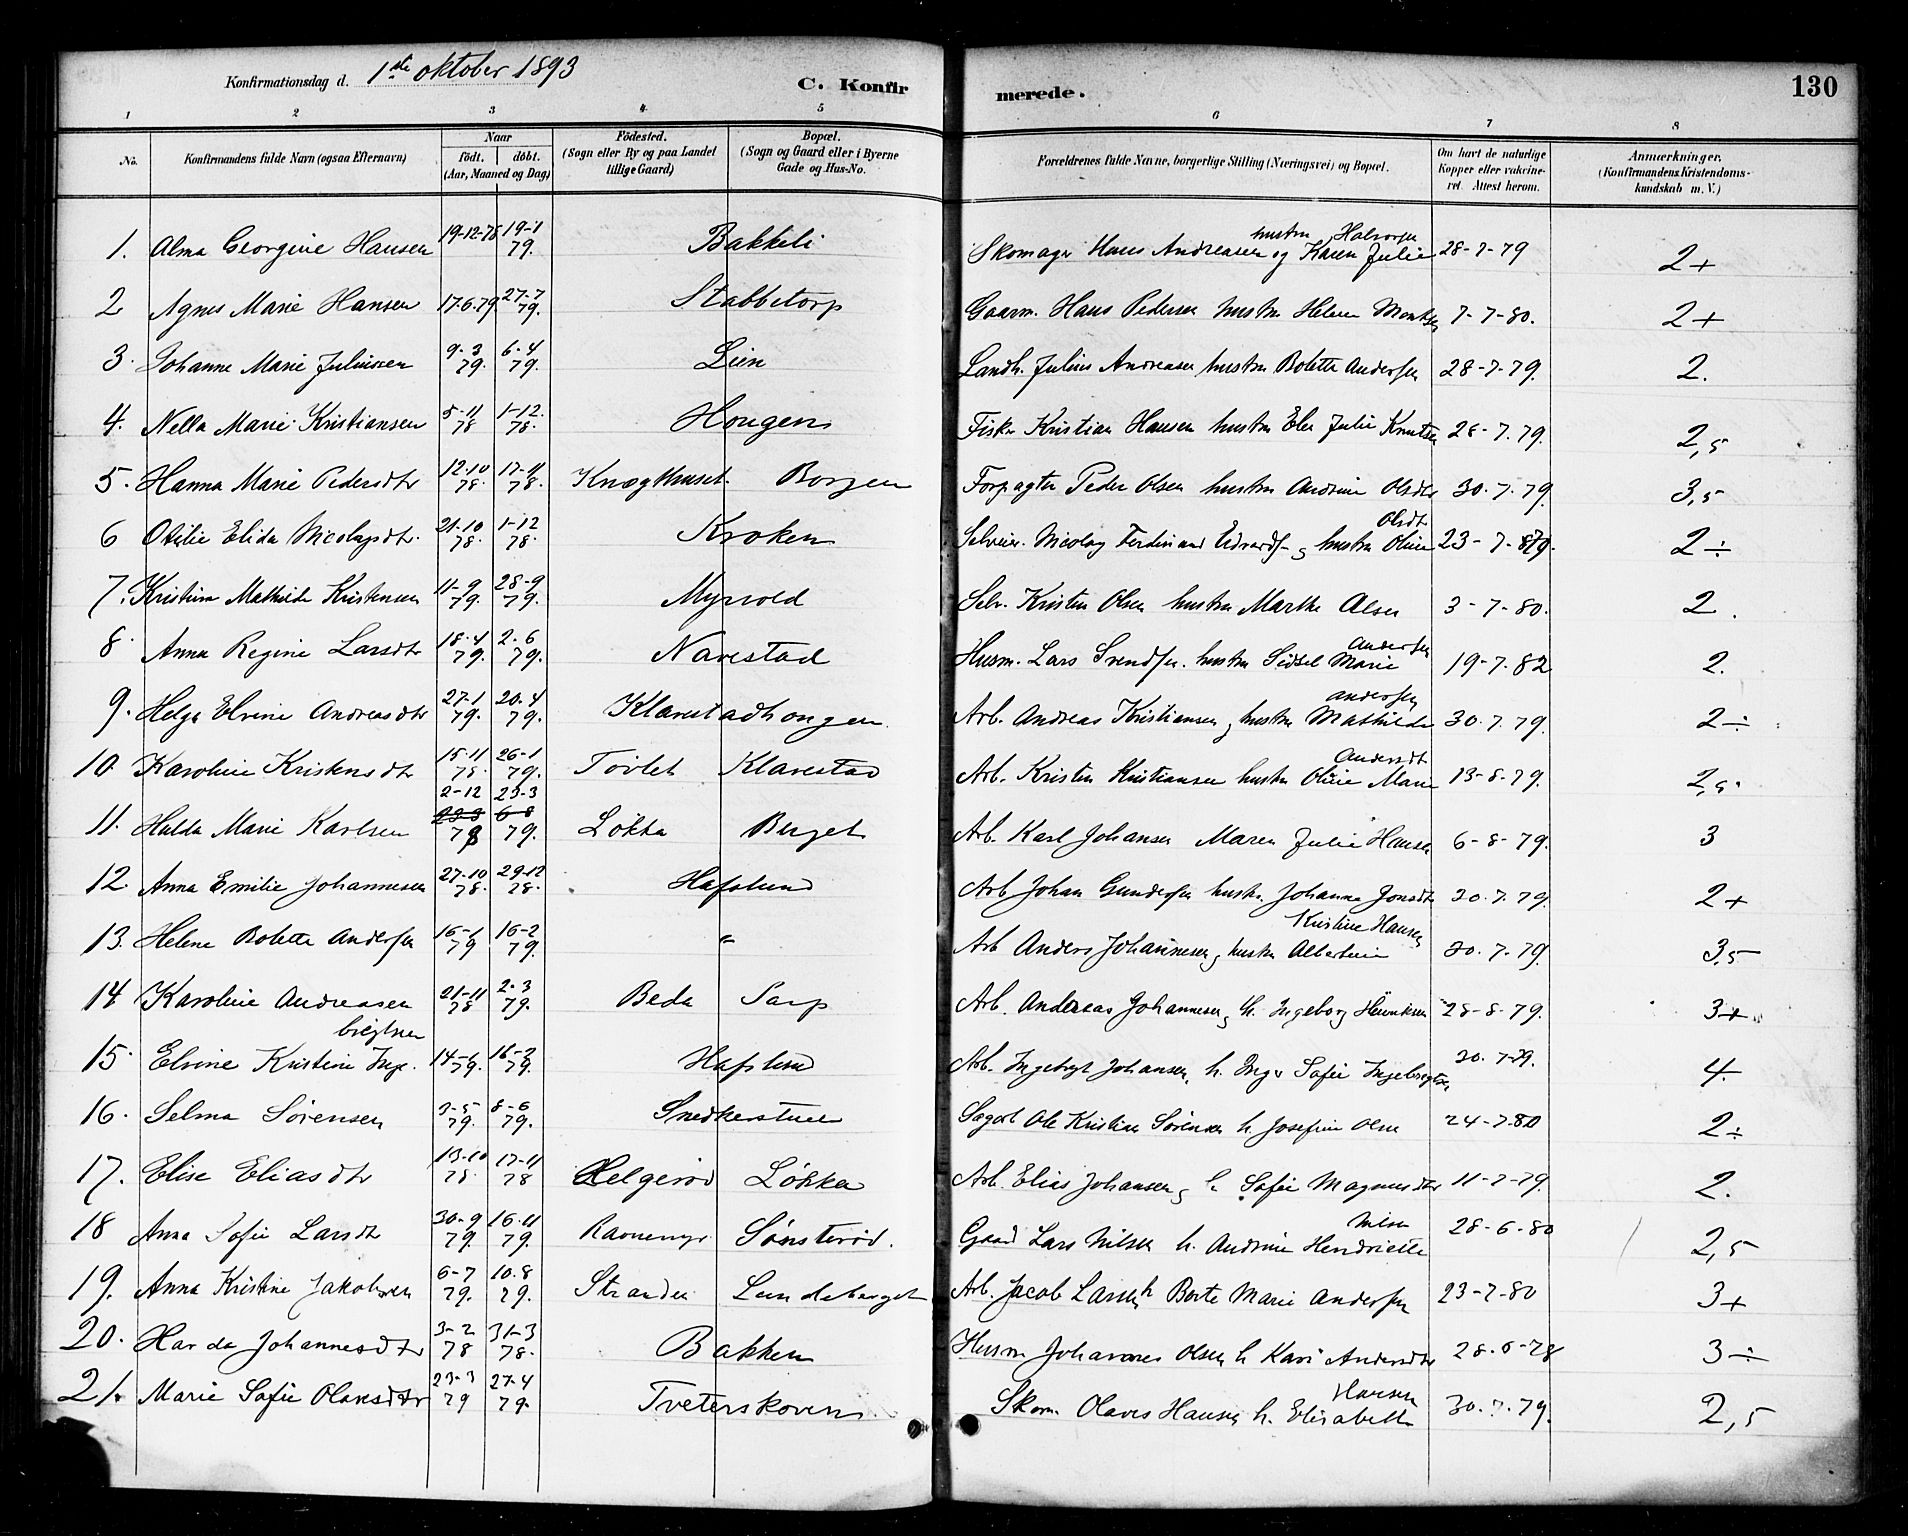 Konfirmationsdag d. 1ste oktober 1893
C. Konfirmerede. 130
1 2 3 4 5 6 7 8
No. Konfirmandens fulde Navn (ogsaa Efternavn) Naar født. døbt. (Aar, Maaned og Dag) Fødested. (Sogn eller By og paa Landet tillige Gaard) Bopæl. (Sogn og Gaard eller i Byerne Gade og Hus-No. Forældrenes fulde Navne, borgerlige Stilling (Næringsvei) og Bopæl. Om havt de naturlige Kopper eller vakcineret. Attest herom. Anmærkninger. (Konfirmandens Kristendomskundskab m. V.)
1. Alma Georgine Hansen 19-12-78 19-1 79. Bakkeli Skomager Hans Andreasen og hustru Karen Julie Halvorsen 28-7-79 2+
2 Agnes Marie Hansen 17-6-79. 27-7 79. Stabbetorp Gaarm. Hans Pedersen hustru Helene 7-7-80. 2+
3. Johanne Marie Juliussen 9-3 79. 6-4 79. Lien Landh. Julius Andreasen hustru Bolette Andersen 28-7-79. 2.
4. Nella Marie Kristiansen 5-11 78 1-12. 78. Hougen Fisker Kristian Hansen hustru Elen Julie Knutsen 28-7.79. 2,5
5. Hanna Marie Pedersdtr 12-10 78. 17-11 78. Borgen Forpagter Peder Olsen hustru Andrine Olsdtr 30.7.79. 3,5
6 Otilie Elida Nicolaysdtr. 21-10 78. 1-12 78. Kroken Selveier. Nicolay Ferdinand Edvardsen og hustru Oline Olsdt 23-7-79. 2÷
7. Kristine Mathilde Kristensen 11-9 79. 28-9 79. Myrvold Selv. Kristen Olsen hustru Marthe Olsen 3-7-80. 2.
8. Anna Regine Larsdtr 18-4 79. 2-6 79. Navestad Husm. Lars Svendsen. hustru Sidsel Marie Andersen 19-7-82 2.
9. Helga Elvine Andreasdtr 27-1 79. 20-4 79. Klavestadhougen. Arb. Andreas Kristiansen og hustru Mathilde andersen 30.7.79. 2÷
10. Karoline Kristensdtr 15-11 78 26-1 79. Torlet Klavestad Arb. Kristen Kristiansen hustru Oline Marie Andersdt 13-8-79. 2,5
11. Hulda Marie Karlsen 2-12 78 23-3 79. Løkka Berget Arb. Karl Johansen Maren Julie Hansen 6-8-79. 3
12. Anna Emilie Johannesen 27-10 78. 29-12 78. Hafslund Arb Johan Gundersen hustru. Johanne Jonsdtr 30.7.79. 2+
13. Helene Bolette Andersen 16-1 79 16-2 79. " Arb Anders Johannesen og hustru Albertine Kristine Hansen 30.7.79. 3,5
14 Karoline Andreasen 21-11 78 2-3 79. Beda Sarp Arb. Andreas Johannesen og h. Ingeborg Henriksen 28-8-79. 3+
15. Elvine Kristine Ingebrigtsen 14-1 79. 16-2 79. Hafslund Arb. Ingebrigt Johansen, h. Inger Sofie Ingebrigtsen 30.7-79. 4.
16. Selma Sørensen 3-5 79. 8-6 79. Snedkerstuen Sagarb Ole Kristian Sørensen h. Josefine Olsen 24-7-80 2÷
17. Elise Eliasdtr 13-10 78. 17-11 78 Helgerød Løkken Arb. Elias Johansen og h. Sofie Magnusdtr 11-7-79. 2.
18 Anna Sofie Larsdtr 30-9 79. 16-11 79. Ravnemyr Sønsterød. Gaard Lars Nilsen h. Andrine Henriette Nilsen 28-6-80 2,5
19. Anna Kristine Jakobsen 6-7 79. 10-8 79. Stranden Lundeberget Arb. Jacob Larsen h Berte Marie Andersen 23-7-80 3+
20. Harda Johannesdtr 3-2 78 31-3 78. Bakken Husm Johannes Olsen h Kari Andersdtr 28-6-78 3÷
21. Marie Sofie Olavesdtr 23-3 79 27-4 79. Tveterskoven Skom. Olaves Hansen h. Elisabeth Hansen 30.7.79. 2,5